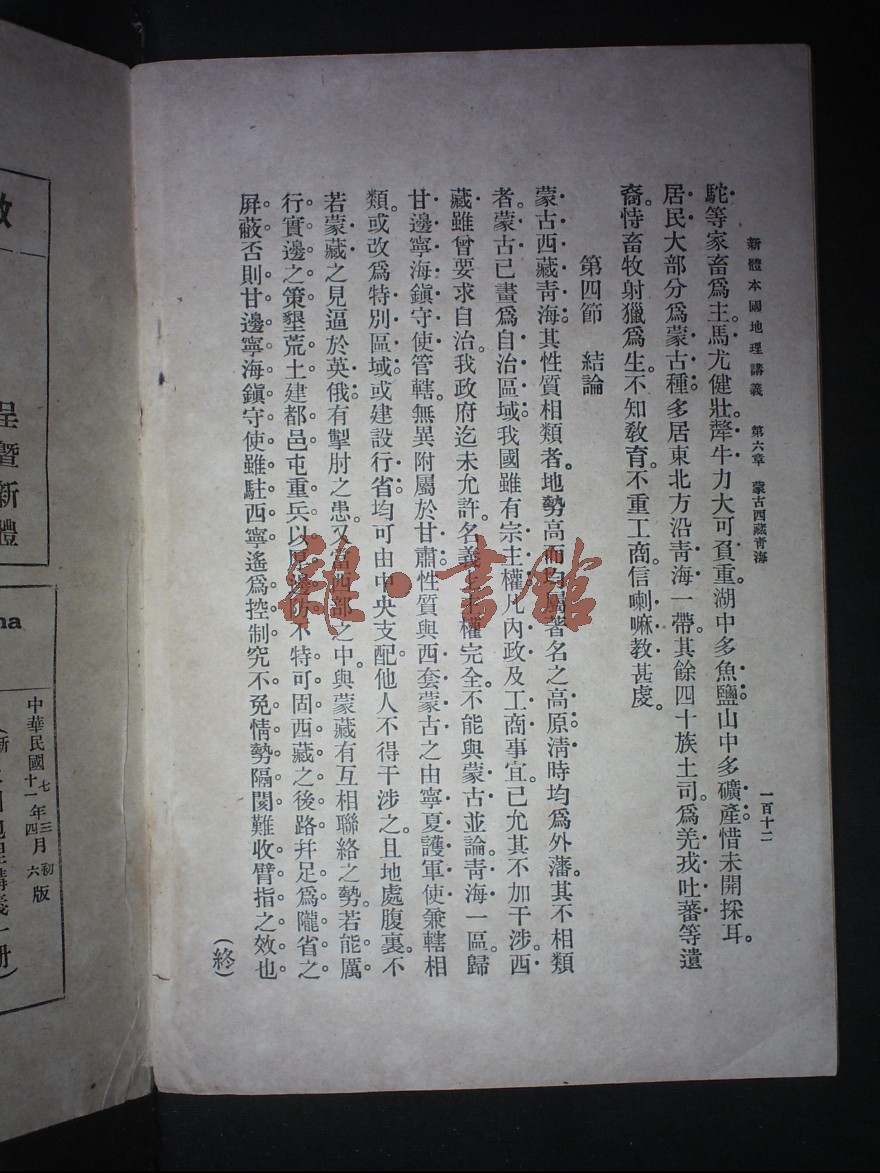 新體本國地理講義　第六章　蒙古西藏靑海　一百十二
駝等家畜爲主。馬尤健壯。犛牛力大可負重。湖中多魚鹽。山中多礦產。惜未開採耳。
居民大部分爲蒙古種。多居東北方沿靑海一帶。其餘四十族土司。爲羌戎吐蕃等遺
裔。恃畜牧射獵爲生。不知敎育。不重工商。信喇嘛敎甚虔。
第四節　結論
蒙古西藏靑海。其性質相類者。地勢高而均屬著名之高原。淸時均爲外藩。其不相類
者。蒙古已畫爲自治區域。我國雖有宗主權。凡內政及工商事宜。已允其不加干涉。西
藏雖曾要求自治。我政府迄未允許。名義上主權完全。不能與蒙古並論。靑海一區。歸
甘邊寧海鎭守使管轄。無異附屬於甘肅。性質與西套蒙古之由寧夏護軍使兼轄相
類。或改爲特別區域。或建設行省。均可由中央支配。他人不得干涉之。且地處腹裏。不
若蒙藏之見逼於英俄。有掣肘之患。又當西部之中。與蒙藏有互相聯絡之勢。若能厲
行實邊之策。墾荒土。建都邑。屯重兵。以厚邊防。不特可固西藏之後路。幷足爲隴省之
屏蔽。否則甘邊寧海鎭守使雖駐西寧。遙爲控制。究不免情勢隔閡。難收臂指之效也。
（終）
呈曁新體
na
中華民國七年三月初版
十一四六